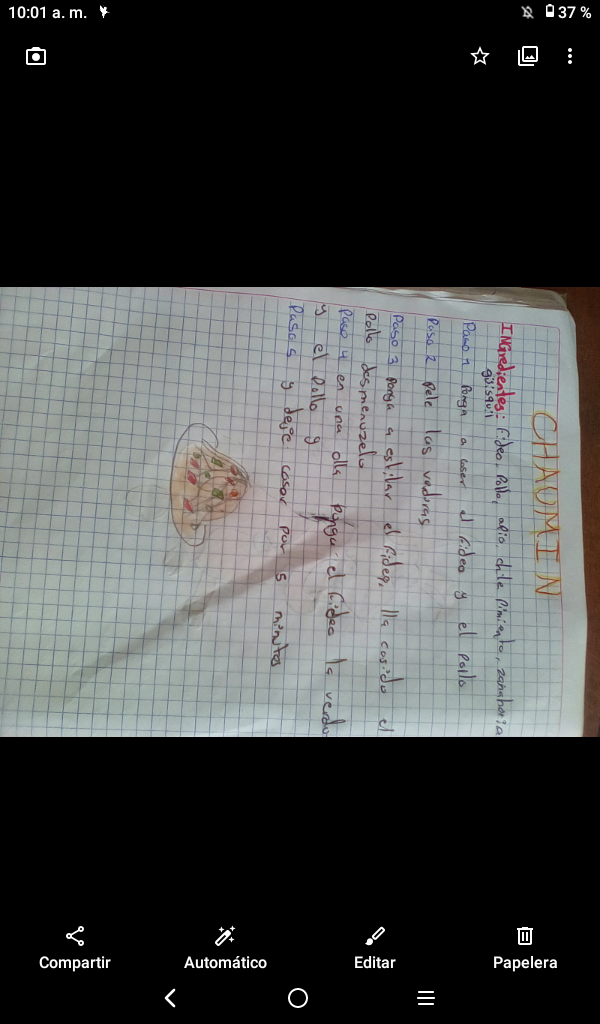 10:01 a. m.
37 %
CHAOMIN
INgredientes: fideo, Pollo, apio, chile Pimiento, zanahoria
güisquil
Paso 1 Ponga a coser el fideo y el pollo
Paso 2 Pele las verduras
Paso 3 Ponga a estilar el fideo, lla cosido el
Pollo desmenuzelo
Paso 4 en una olla ponga el fideo la verdu
y el Pollo y
Paso 5 y deje cosar por 5 minutos
Compartir
Automático
Editar
Papelera